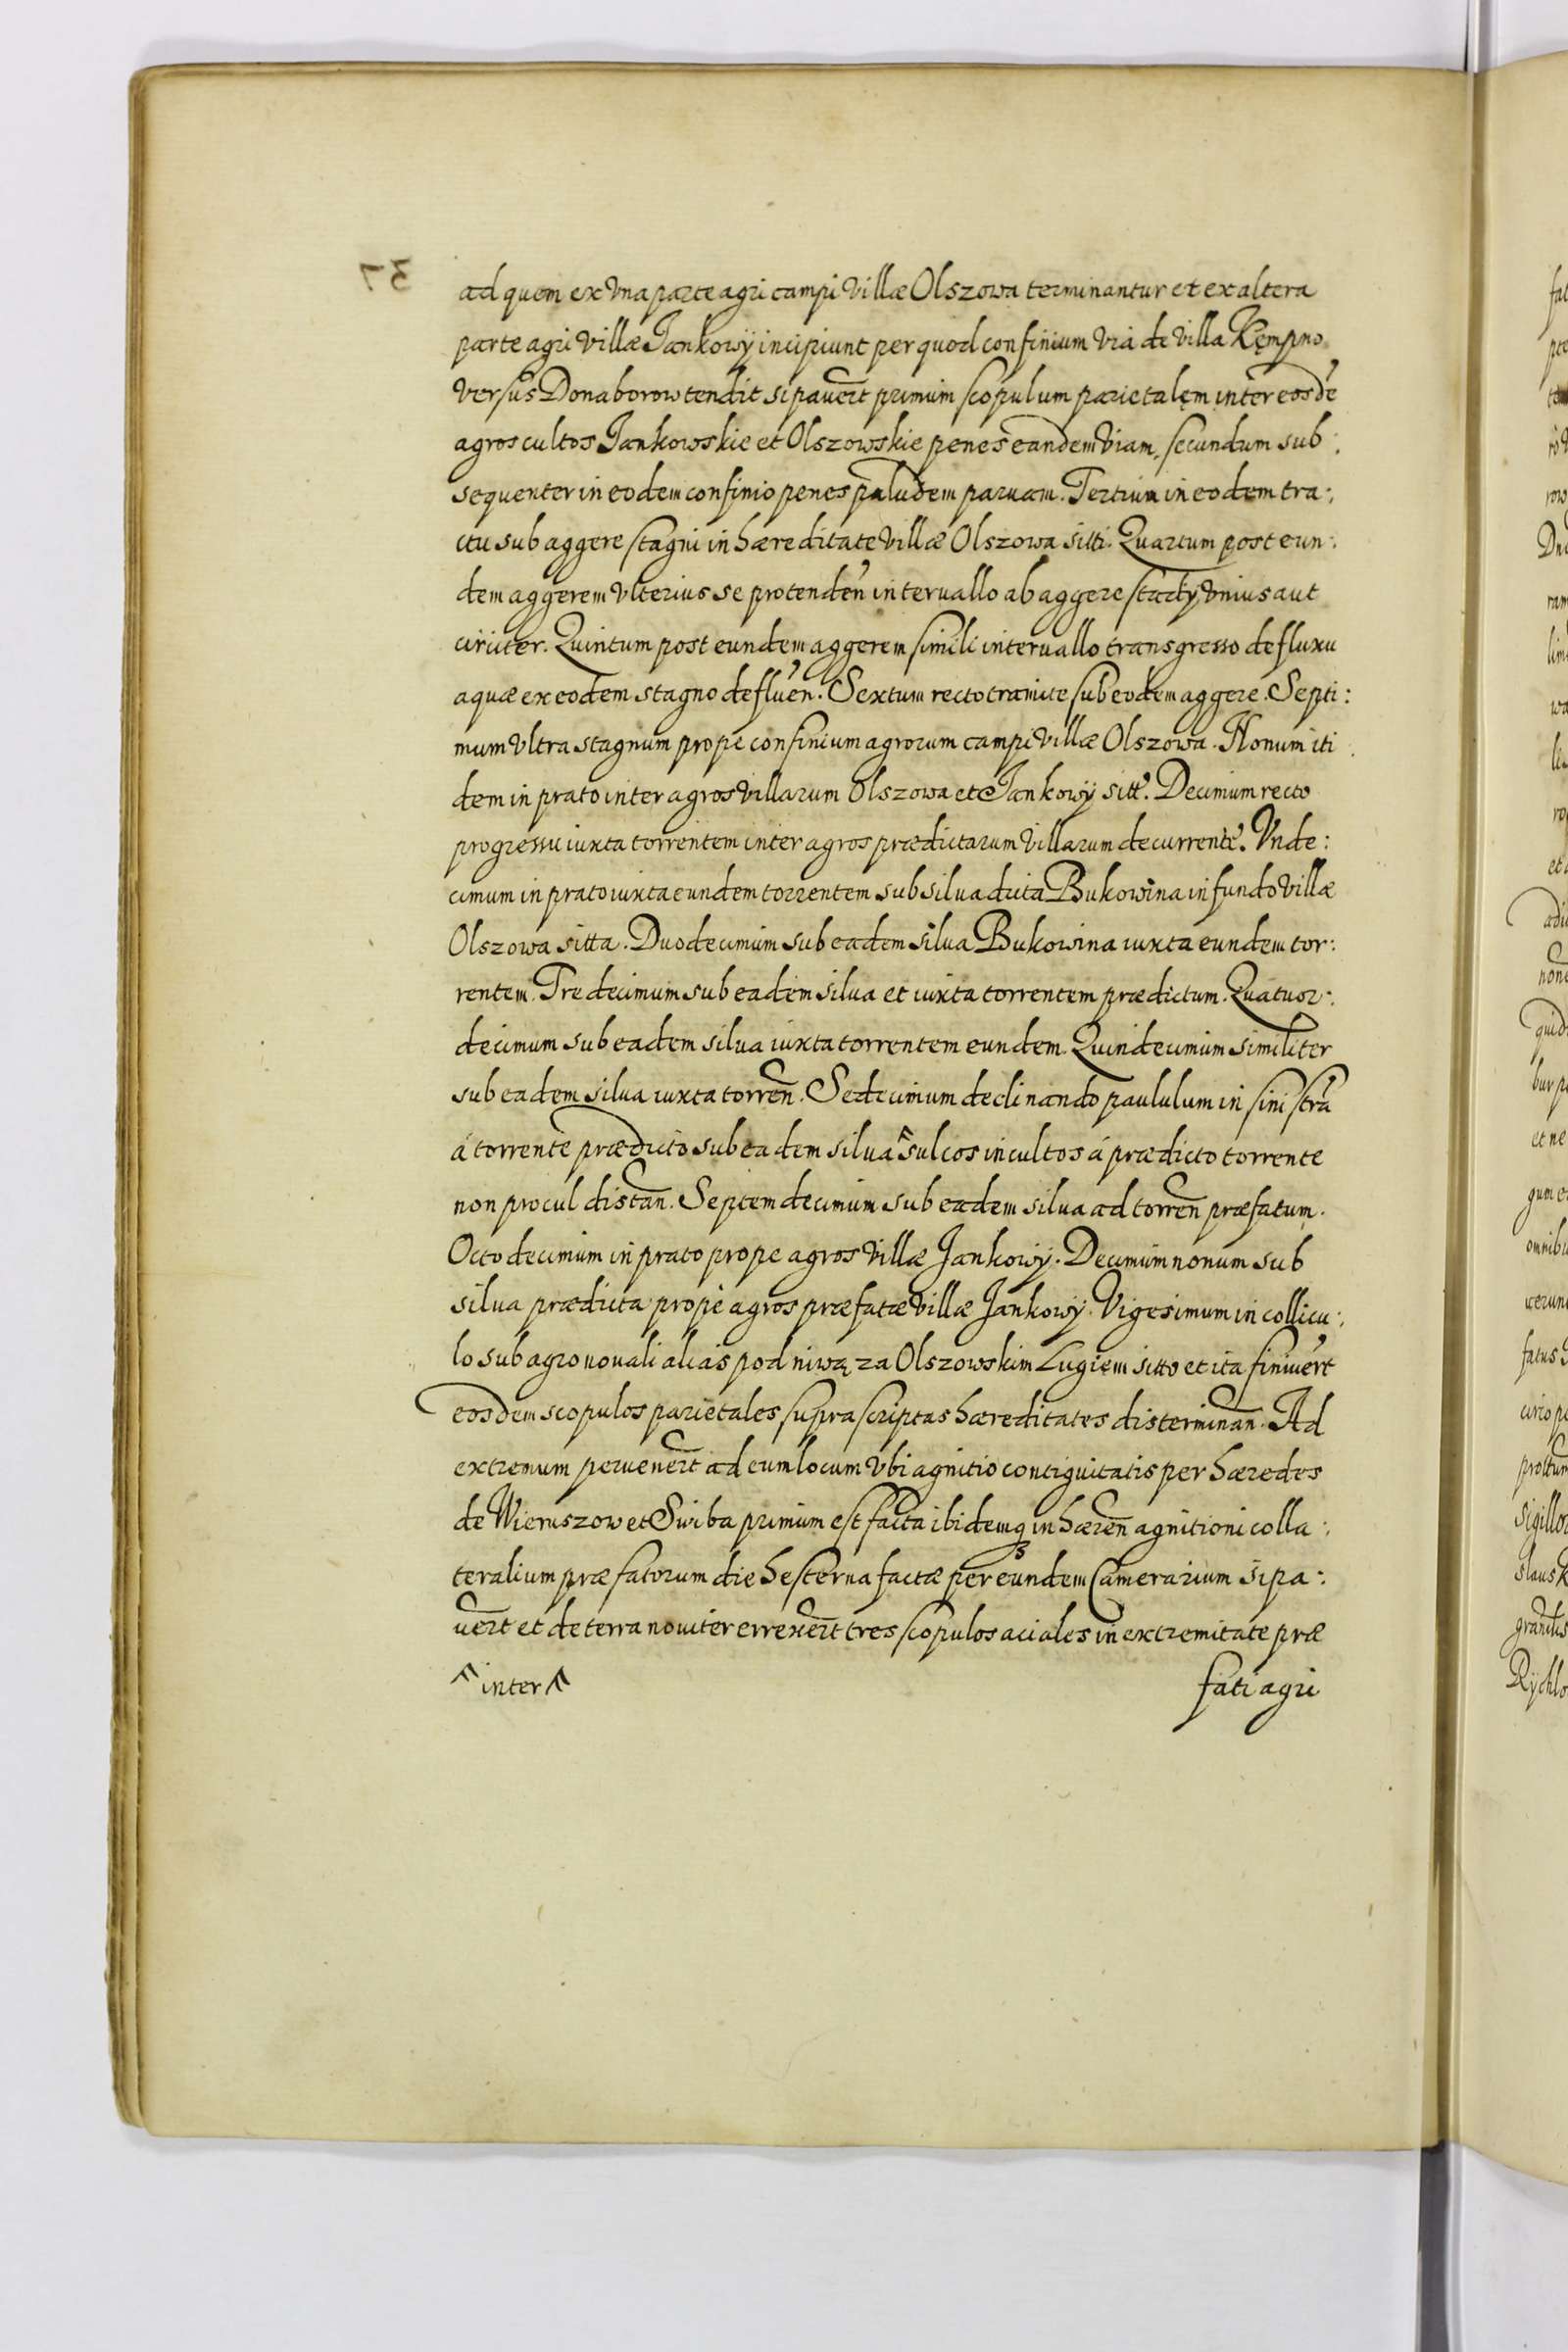 ad quem ex vna parte agri campi villæ Olszowa terminantur et ex altera
parte agri villæ Jankowÿ incipiunt per quod confinium via de villa Kęmpno
versus Donaborow tendit sipauert primum scopulum parietalem inter eosde
agros cultos Jankowskie et Olszowskie penes eandem viam, secundum sub:
sequenter in eodem confinio penes paludem paruam. Tertium in eodem tra:
ctu sub aggere stagni in hæreditate villæ Olszowa sitti. Quartum post eun:
dem aggerem vlterius se protenden interuallo ab aggere stadÿ vnius aut
circiter. Quintum post eundem aggerem simili interuallo transgresso defluxu
aquæ ex eodem stagno defluen. Sextum recto tramite sub eodem aggere. Septi:
mum vltra stagnum prope confinium agrorum campi villæ Olszowa. Nonum iti
dem in prato inter agros villarum Olszowa et Jankowÿ sitt. Decimum recto
progressu iuxta torrentem inter agros prædictarum villarum decurrente. Vnde:
cimum in prato iuxta eundem torrentem sub silua dicta Bukowina in fundo villæ
Olszowa sitta. Duodecimum sub eadem silua Bukowina iuxta eundem tor:
rentem. Tredecimum sub eadem silua et iuxta torrentem prædictum. Quatuor:
decimum sub eadem silua iuxta torrentem eundem. Quindecimum similiter
sub eadem silua iuxta torren. Sedecimum declinando paululum in sinistra
á torrente prædicto sub eadem silua ^ sulcos incultos á prædicto torrente
non procul distan. Septemdecimum sub eadem silua ad torren præfatum.
Octodecimum in prato prope agros villæ Jankowÿ. Decimum nonum sub
silua prædicta prope agros præfatæ villæ Jankowÿ. Vigesimum in collicu:
lo sub agro nouali alias pod niwą za Olszowskim Lugiem sitto et ita finiuert
eosdem scopulos parietales suprascriptas hæreditates disterminan. Ad
extremum peruenert ad eum locum vbi agnitio contiguitatis per hæredes
de Wieruszow et Swiba primum est facta ibidemq inhæren agnitioni colla:
teralium præfatorum die hesterna factæ per eundem Camerarium sipa:
uert et de terra nouiter errexert tres scopulos aciales in extremitate præ
^ inter ^
fati agri